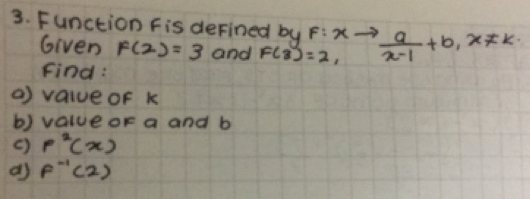 3. Function F is defined by F: x → a/(x-1) + b, x ≠ k.
Given F(2) = 3 and F(3) = 2,
Find:
a) value of k
b) value of a and b
c) F²(x)
d) F⁻¹(2)